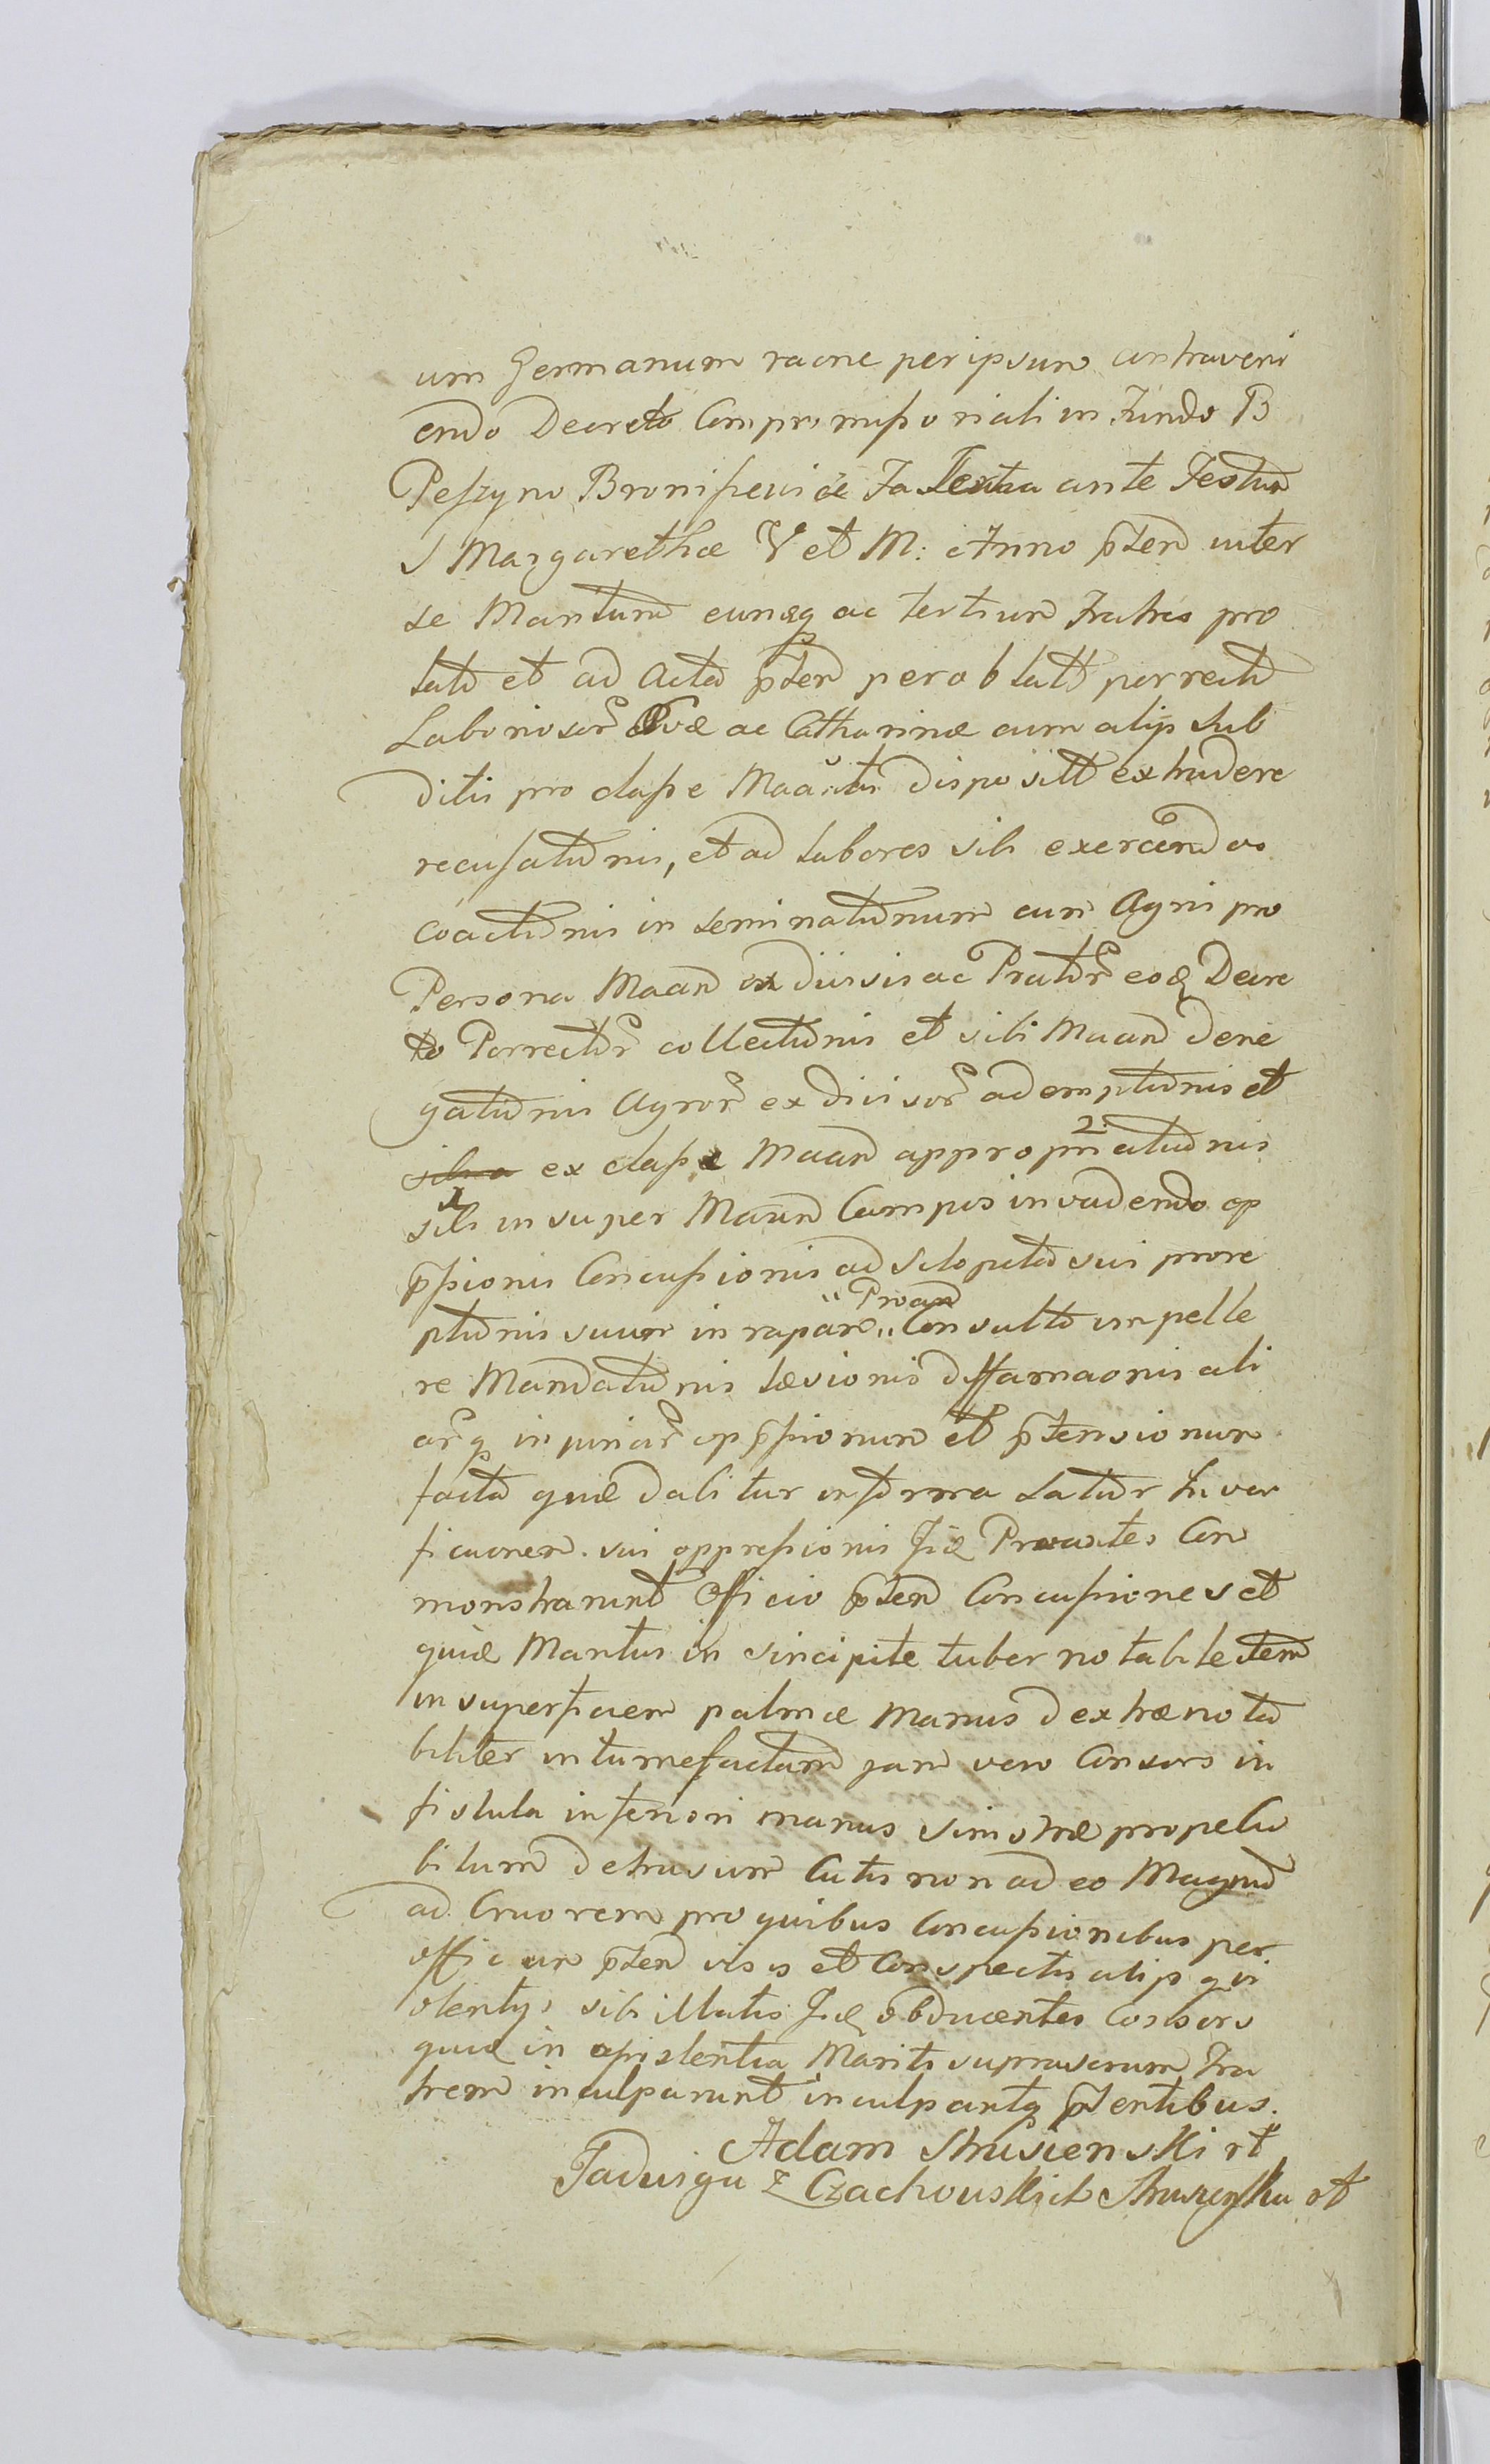 um Germanum raone per ipsum contraveni
endo Decreto Compromissoriali in Fundo B
Peszyno Bronissewice Fa Sexta ante Festum
S Margarethæ V et M: Anno pten inter
se Maritum eumq ac tertium Fratres pro
latum et ad Acta pten per oblatt porrectum
Laboriosor Evæ ac Catharinæ cum alijs Sub
ditis pro classe Maantis disposittt extradere
recusationis, et ad labores sibi exercendos
coactionis in seminationum cum Agri pro
Persona Maan ex divisis ac Prator eoq Decre
to Porrector collectionis et sibi Maan dene
gationis Agror ex divisor ademptionis et
ex classe Maan appropriationis
sibi insuper Maan Campis invadendo op
pssionis Concussionis ad sclopeta sui prore
ptionis suum in raparo „ Proan
„ Consulto impelle
re Mandationis læsionis diffamaonis ali
arq injuriar oppssionum et ptensionum
facta quæ dabitur in forma latior In veri
ficaonem sui oppressionis Iid Proantes Con
monstrarunt Officio pten Concussiones et
quid Maritus in sincipite tuber notabile tem
in superficiem palmæ Manus dextræ nota
biliter intumefactam jam vero Consors in
fistula inferiori manus sinistræ prope Cu
bitum detrusum Cutis non adeo Magnum
ad Cruorem pro quibus Concussionibus per
Officium pten visis et Conspectis alijs qui
olentijs sibi illatis Iid obducentes Consors
quid in assistentia Mariti supra verum Fra
trem inculparunt inculpantq ptentibus.
Adam Strusienski rt
Jadwiga z Czachouskich Strusienska rt